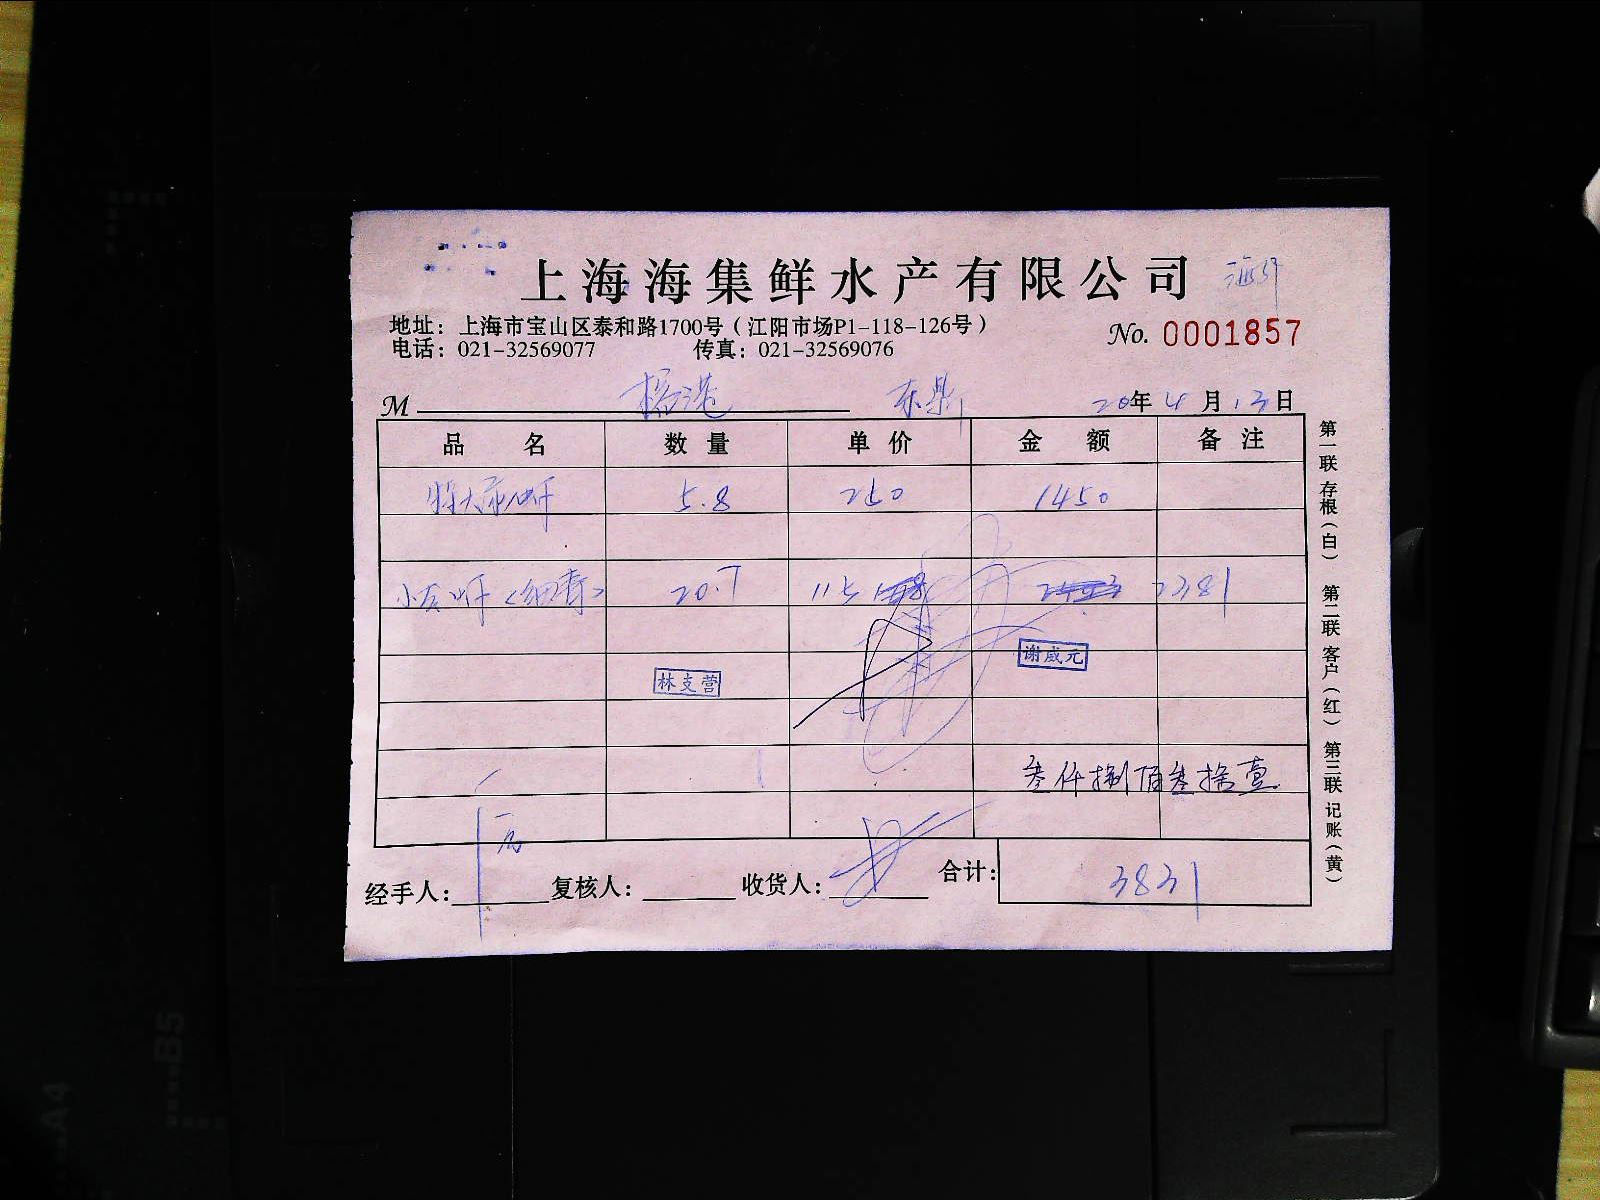 上海海集鲜水产有限公司
地址：上海市宝山区泰和路1700号（江阳市场P1-118-126号）
No. 0001857
电话：021-32569077 传真：021-32569076
M 杨港 东鼎 20年4月13日
品名 数量 单价 金额 备注
5.8 250 1450
20.7 115 2381
谢威元
林支营
叁仟捌佰叁拾壹
经手人： 复核人： 收货人： 合计： 3831
第一联 存根（白） 第二联 客户（红） 第三联 记账（黄）
A4
B5